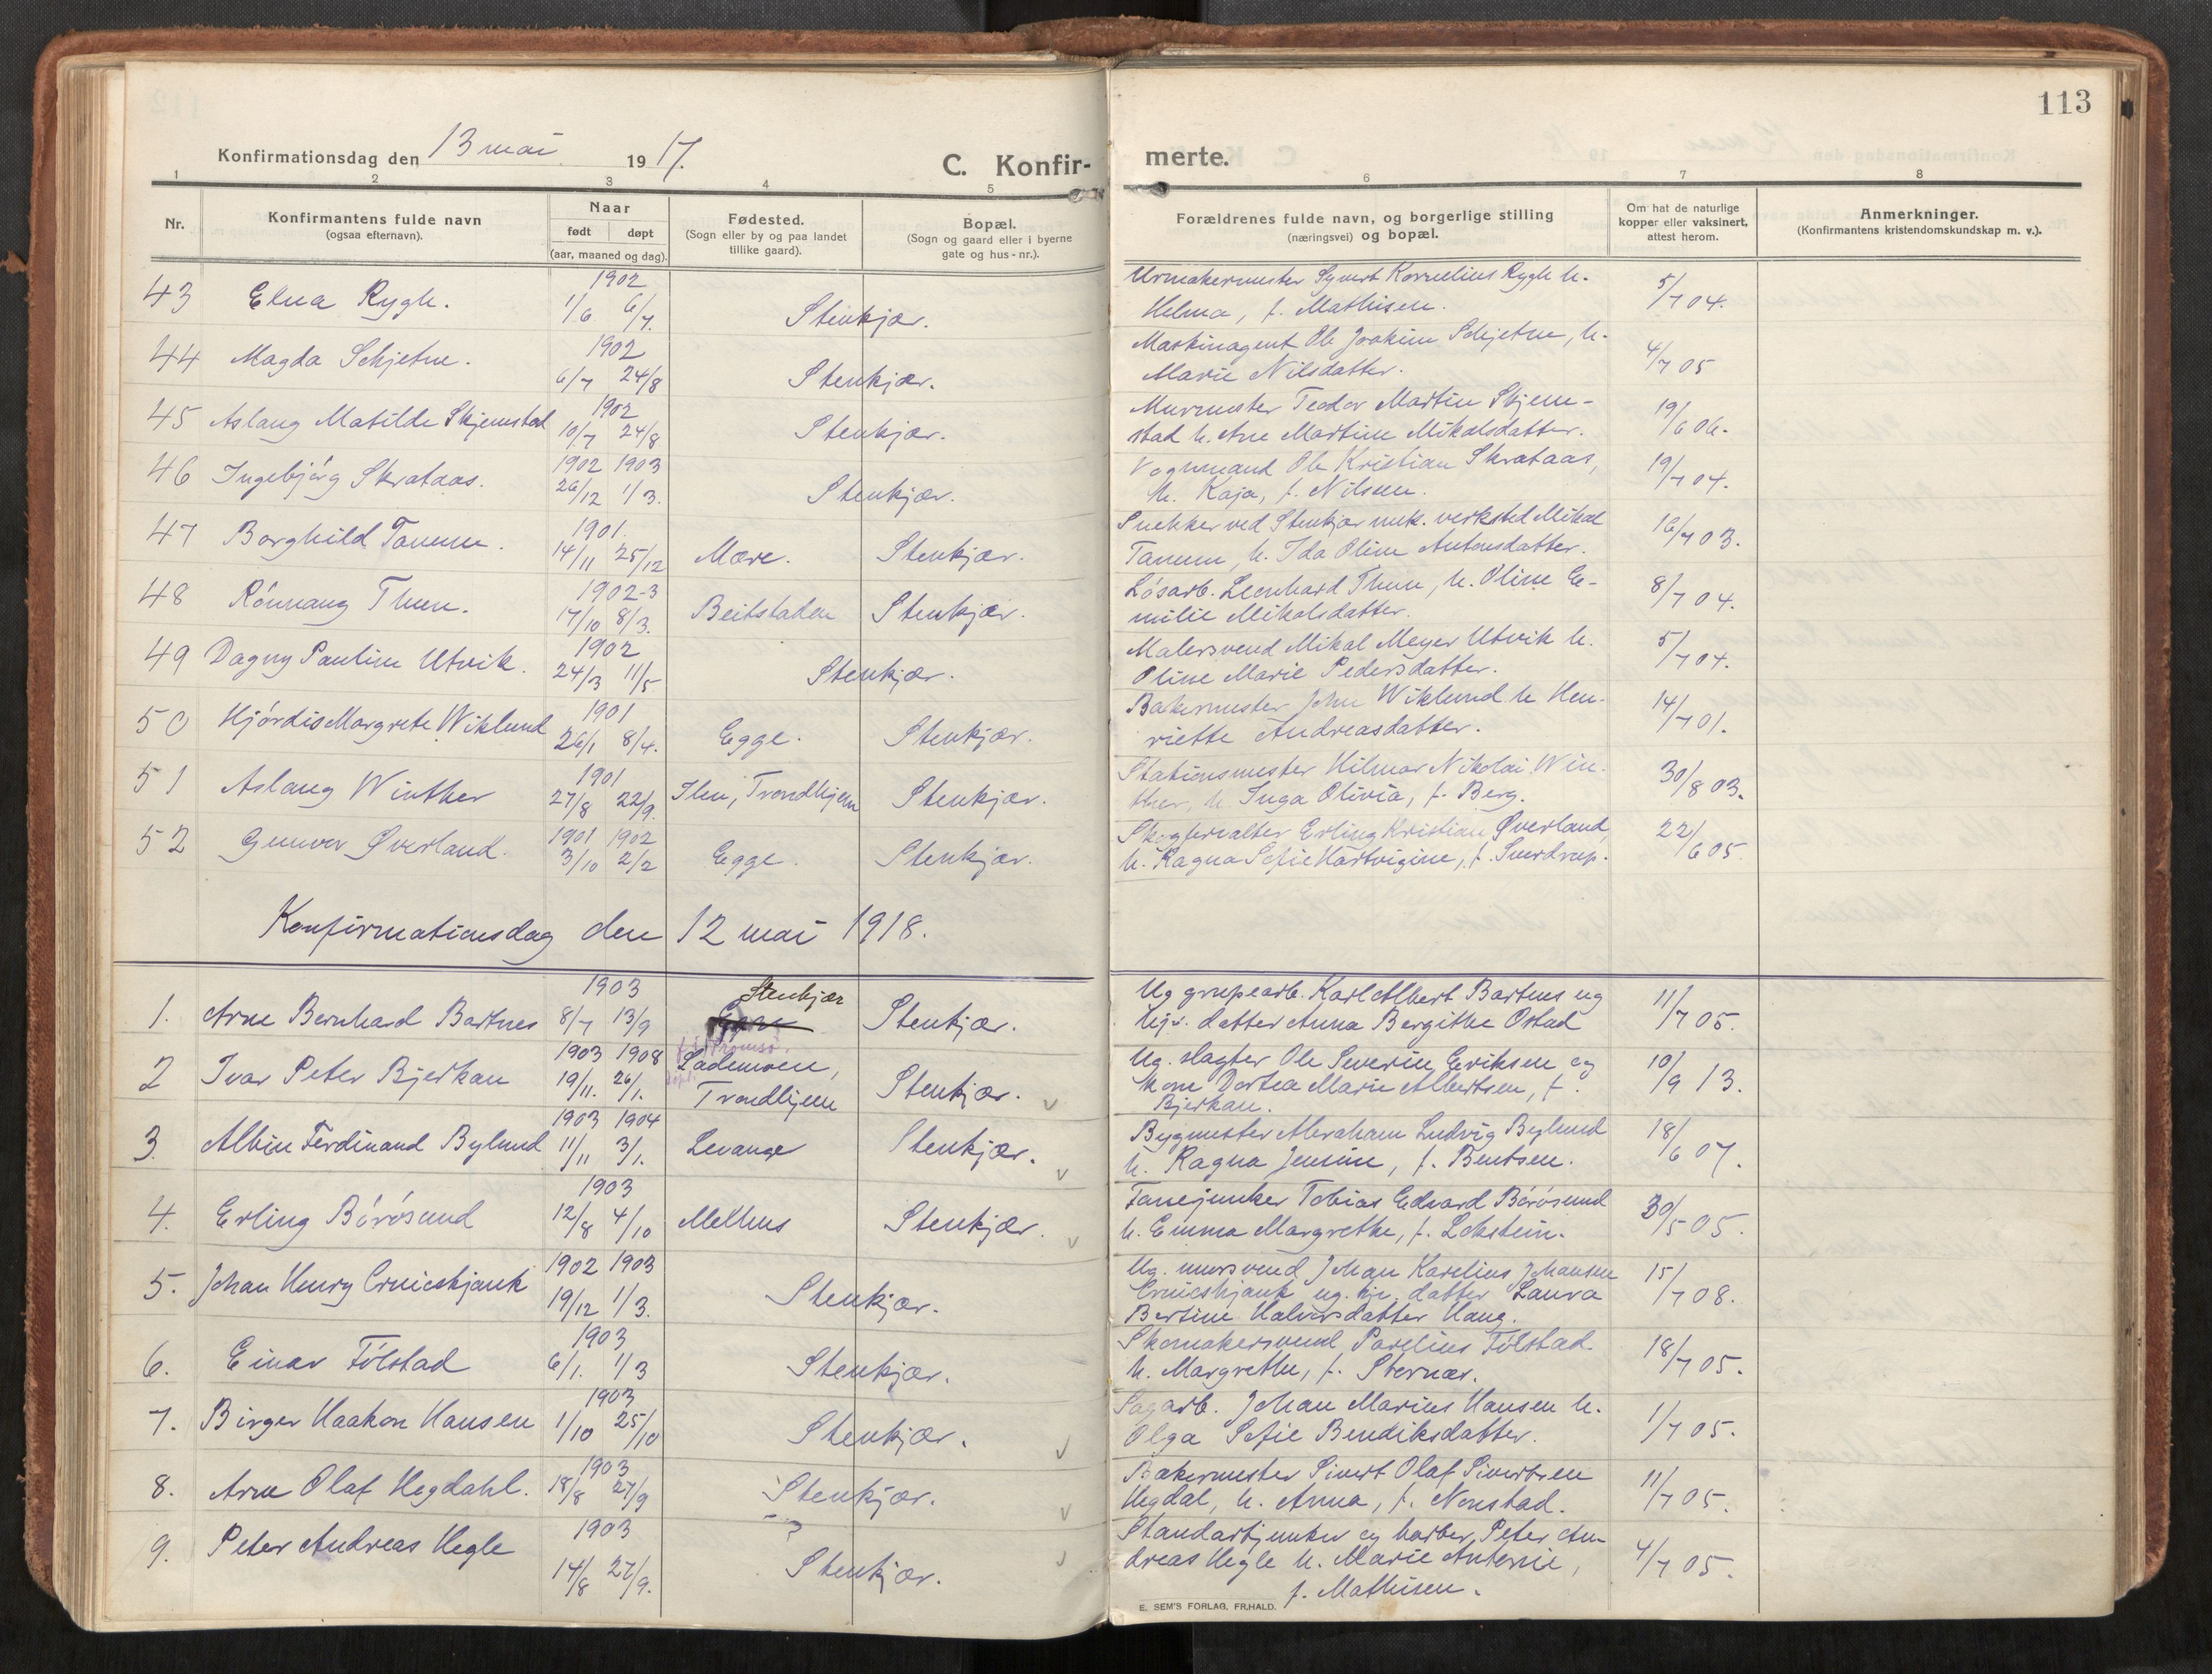 113
Konfirmationsdag den 13 mai 1917.
C. Konfir-
merte.
1 2 3 4 5 6 7 8
Nr.
Konfirmantens fulde navn
(ogsaa efternavn).
Naar
født døpt
(aar, maaned og dag).
Fødested.
(Sogn eller by og paa landet
tillike gaard).
Bopæl.
(Sogn og gaard eller i byerne
gate og hus-nr.).
Forældrenes fulde navn, og borgerlige stilling
(næringsvei) og bopæl.
Om hat de naturlige
kopper eller vaksinert,
attest herom.
Anmerkninger.
(Konfirmantens kristendomskundskap m. v.).
43 Elna Rygh. 1902 1/6 6/7. Stenkjær.
Urmakermester Syvert Kornelius Rygh h.
Helma, f. Mathisen. 5/7 04.
44 Magda Schjetne. 1902 6/7 24/8 Stenkjær.
Maskinagent Ole Joakim Schjetne, h.
Marie Nilsdatter. 4/7 05
45 Aslaug Matilde Skjemstad 1902 10/7 24/8 Stenkjær.
Murmester Teodor Martin Skjem-
stad h. Ane Martine Mikalsdatter. 19/6 06.
46 Ingebjørg Skrataas. 1902 1903 26/12 1/3. Stenkjær.
Vognmand Ole Kristian Skrataas,
h. Kaja, f. Nilsen. 19/7 04.
47 Borghild Tanem. 1901. 14/11 25/12 Mære. Stenkjær.
Snekker ved Stenkjær mek. verksted Mikal
Tanem, h. Ida Oline Antonsdatter. 16/7 03.
48 Rönnaug Thun. 1902-3 17/10 8/3. Beitstaden Stenkjær.
Løsarb. Leonhard Thun, h. Oline E-
milie Mikalsdatter. 8/7 04.
49 Dagny Pauline Utvik. 1902 24/3 11/5 Stenkjær.
Malersvend Mikal Meyer Utvik h.
Oline Marie Pedersdatter. 5/7 04.
50 Hjördis Margrete Wiklund 1901 26/1 8/4. Egge. Stenkjær.
Bakermester John Wiklund h. Hen-
riette Andreasdatter. 14/7 01.
51 Aslaug Winther 1901 27/8 22/9. Ilen, Trondhjem Stenkjær.
Stationsmester Hilmar Nikolai Win-
ther, h. Inga Olivia, f. Berg. 30/8 03.
52 Gunvor Øverland. 1901 1902 3/10 2/2 Egge. Stenkjær.
Skogforvalter Erling Kristian Øverland,
h. Ragna Sofie Hartvigine, f. Sverdrup. 22/6 05.
Konfirmationsdag den 12 mai 1918.
1. Arne Bernhard Bartnes 1903 8/7 13/9 Stenkjær Egge Stenkjær.
Ug grupearb. Karl Albert Bartnes og
pige. datter Anna Bergithe Ostad 11/7 05.
2 Ivar Peter Bjerkan 1903 1908 19/11. 26/1. f. i Tromsø. døpt: Lademoen,
Trondhjem Stenkjær.
Ug. slagter Ole Severin Eriksen og
kone Dortea Marie Albertsen, f.
Bjerkan. 10/9 13.
3. Albin Ferdinand Bylund 1903 1904 11/11 3/1. Levanger Stenkjær.
Bygmester Abraham Ludvig Bylund
h. Ragna Jensine, f. Bentsen. 18/6 07.
4. Erling Börösund 1903 12/8 4/10 Melhus Stenkjær.
Fanejunker Tobias Edvard Börösund
h. Emma Margrethe, f. Lokstein. 30/5 05.
5. Johan Henry Cruicshjank 1902 1903 19/12 1/3. Stenkjær.
Ug. mursvend Johan Karelius Johansen
Cruicshjank ug. pi. datter Laura
Bertine Halvorsdatter Haug. 15/7 08.
6. Einar Fölstad 1903 6/1. 1/3 Stenkjær.
Skomakersvend Parelius Fölstad.
h. Margrethe, f. Sternær. 18/7 05.
7. Birger Haakon Hansen 1903 1/10 25/10 Stenkjær.
Sagarb. Johan Marius Hansen h.
Olga Sofie Bendiksdatter. 1/7 05.
8. Arne Olaf Hegdahl. 1903 18/8 27/9 Stenkjær.
Bakermester Sivert Olaf Sivertsen
Hegdal, h. Anna, f. Nonstad. 11/7 05.
9. Peter Andreas Hegle 1903 14/8 27/9. Stenkjær.
Standartjunker og barber, Peter An-
dreas Hegle h. Marie Antonie,
f. Mathisen. 4/7 05.
E. SEM'S FORLAG, FR.HALD.